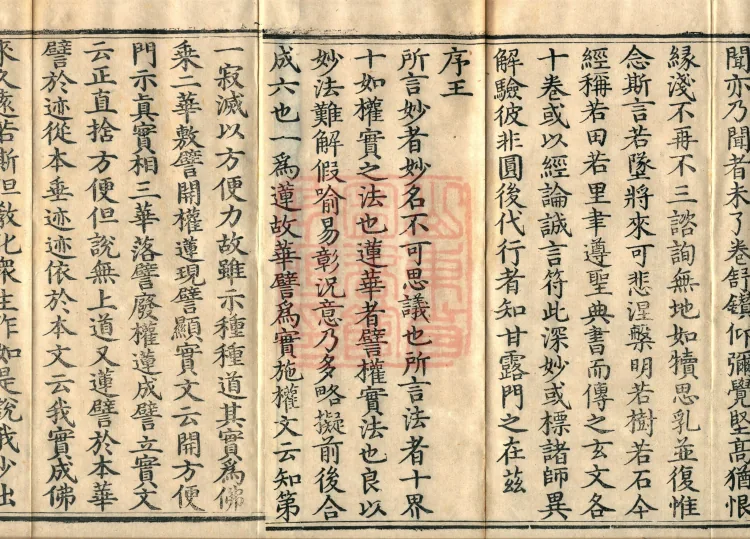 聞亦乃聞者未了卷舒鑽仰彌覺堅高猶恨
緣淺不再不三諮詢無地如犢思乳並復惟
念斯言若墜將來可悲涅槃明若樹若石今
經稱若田若里聿遵聖典書而傳之玄文各
十卷或以經論誠言符此深妙或標諸師異
解驗彼非圓後代行者知甘露門之在茲
序王
所言妙者妙名不可思議也所言法者十界
十如權實之法也蓮華者譬權實法也良以
妙法難解假喻易彰況意乃多略擬前後合
成六也一為蓮故華譬為實施權文云知第
一寂滅以方便力故雖示種種道其實為佛
乘二華敷譬開權蓮現譬顯實文云開方便
門示真實相三華落譬廢權蓮成譬立實文
云正直捨方便但說無上道又蓮譬於本華
譬於迹從本垂迹迹依於本文云我實成佛
來久遠若斯但教化眾生作如是說我少出